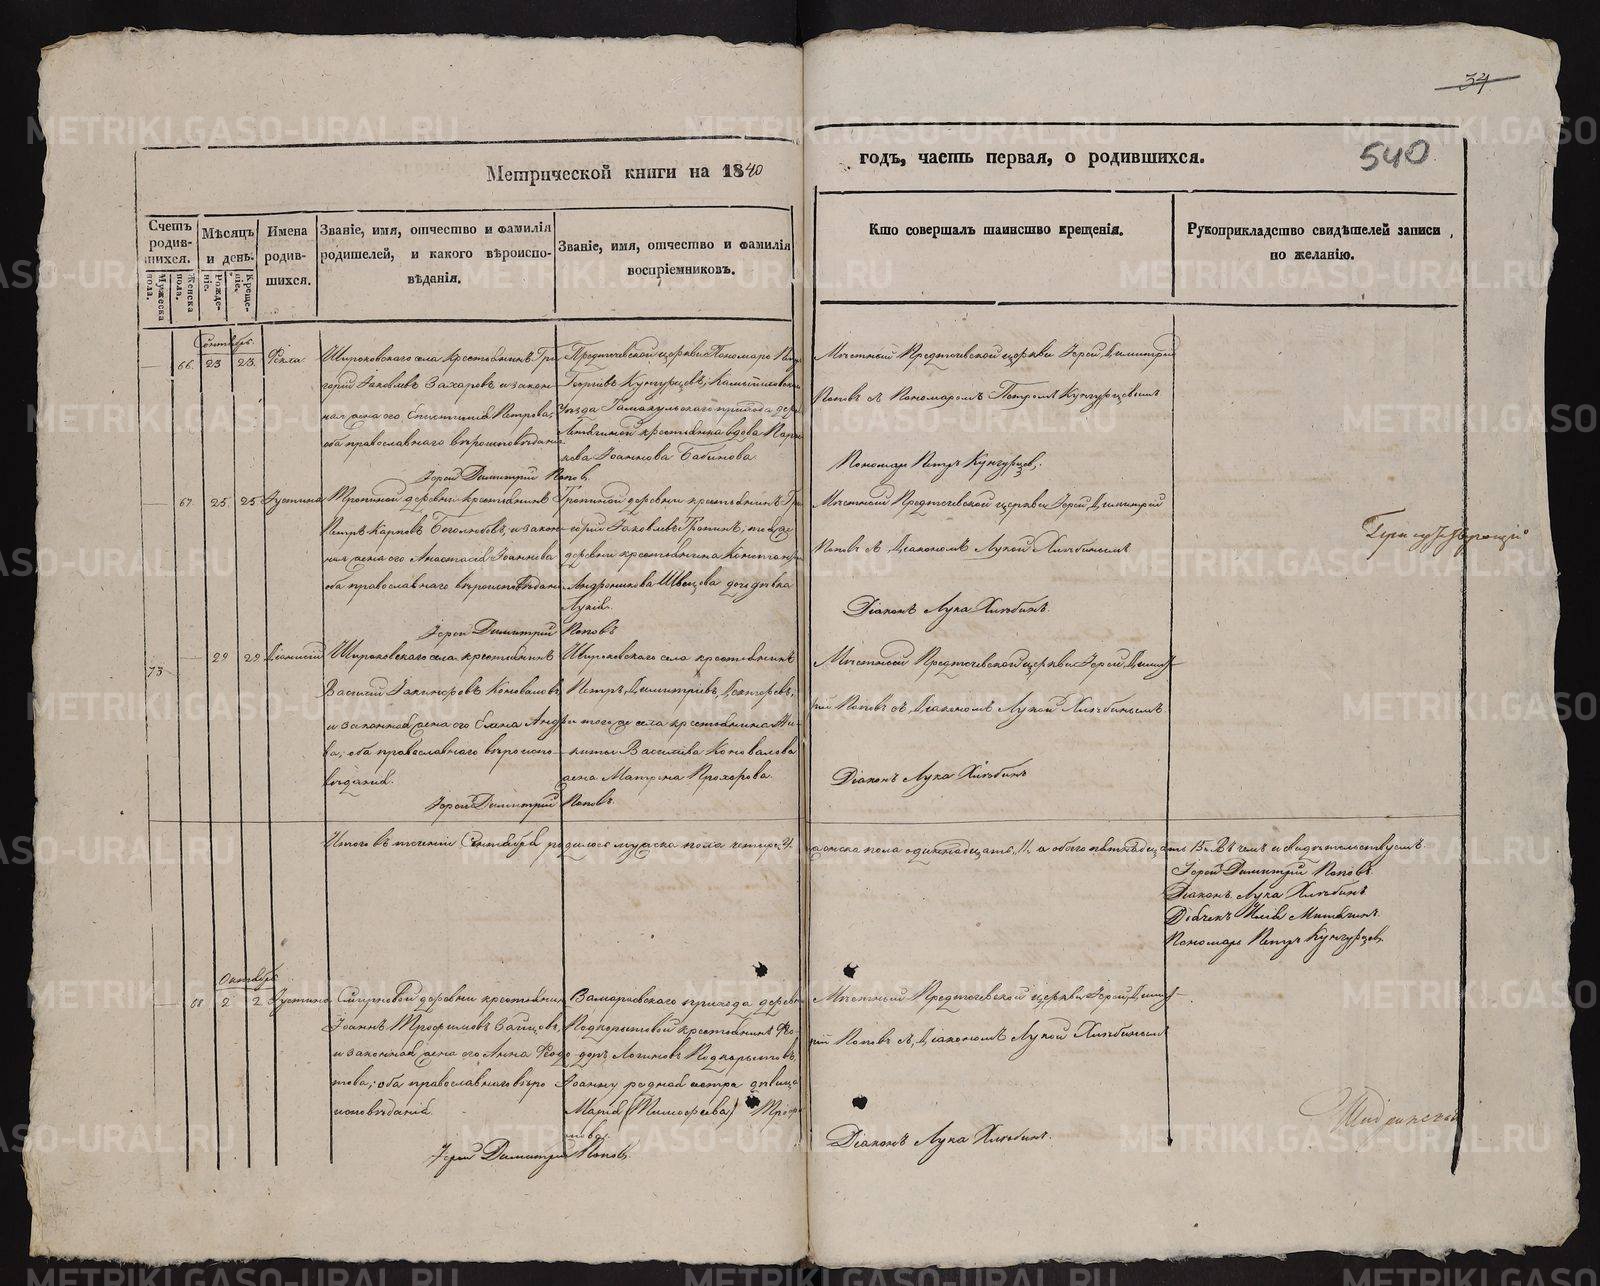 34
540
Метрической книги на 1840
годъ, часть первая, о родившихся.
Счетъ родив-шихся.
Мужеска пола.
Женска пола.
Мѣсяцъ и день.
Рожде-ніе.
Креще-ніе.
Имена родив-шихся.
Званіе, имя, отчество и фамилія родителей, и какого вѣроиспо-вѣданія.
Званіе, имя, отчество и фамилія воспріемниковъ.
Кто совершалъ таинство крещенія.
Рукоприкладство свидѣтелей записи по желанію.
Сентябрь
66. 23 23. Ѳекла
Широковскаго села крестьянинъ Гри-
горій Іаковлевъ Захаровъ и закон-
ная жена его Петрова,
оба православнаго вѣроисповѣданія
Предтечевской церкви Пономарь Петръ
Георгіевъ Кунгурцевъ; Камышловскаго
уѣзда прихода дерев
крестьянка вдова
Іоаннова Бабинова.
Іерей Димитрій Поповъ.
Мѣстный Предтечевской церкви Іерей Димитрій
Поповъ съ Пономаремъ Петромъ Кунгурцевымъ
Пономарь Петръ Кунгурцевъ.
67. 25 25 Іустина
Тропиной деревни крестьянинъ
Петръ Карповъ Боголюбовъ, и закон-
ная жена его Анастасія Іоаннова
оба православнаго вѣроисповѣданія
Тропиной деревни крестьянинъ Гри-
горій Іаковлевъ Тропинъ; той же
деревни крестьянина Константина
Андроникова Швецова дочь дѣвка
Лукія.
Іерей Димитрій Поповъ
Мѣстный Предтечевской церкви Іерей Димитрій
Поповъ съ Діакономъ Лукой Хлѣбинымъ
Діаконъ Лука Хлѣбинъ.
73 29 29 Діонисій
Широковскаго села крестьянинъ
Василій Коноваловъ
и законная жена его Елена Андре-
ва; оба православнаго вѣроиспо-
вѣданія.
Широковскаго села крестьянинъ
Петръ Димитріевъ
и того же села крестьянина Ни-
киты Василіева Коновалова
жена Матрона Прохорова.
Іерей Димитрій Поповъ.
Мѣстный Предтечевской церкви Іерей Димит-
рій Поповъ съ Діакономъ Лукой Хлѣбинымъ.
Діаконъ Лука Хлѣбинъ
Итого въ теченіи Сентября родилось мужска пола четыре 4. женска пола одиннадцать 11. а обоего пятнадцать 15. Въ чемъ и свидѣтельствуемъ.
Іерей Димитрій Поповъ.
Діаконъ Лука Хлѣбинъ
Дьячекъ Илія Митягинъ.
Пономарь Петръ Кунгурцевъ
Октябрь
68 2 2 Іустина
Смирновой деревни крестьянинъ
Іоаннъ Трофимовъ
и законная жена его Анна Ѳедо-
това; оба православнаго вѣро
исповѣданія.
прихода деревни
Подкорытовой крестьянинъ Ѳео-
доръ Логиновъ Подкорытовъ,
Іоанну родная сестра дѣвица
Марія (Тимофеева) Трофи
мова.
Іерей Димитрій Поповъ.
Мѣстный Предтечевской церкви Іерей Димит-
рій Поповъ съ Діакономъ Лукой Хлѣбинымъ
Діаконъ Лука Хлѣбинъ.
METRIKI.GASO-URAL.RU